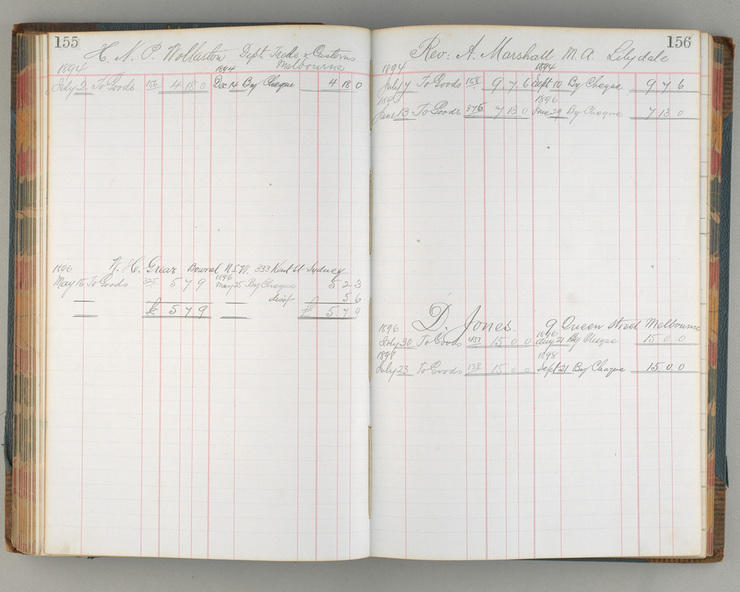 155
H. N. P. Wollaston Dept. Trade & Customs
Melbourne
1894 1894
July 2 To Goods 152 4 18 0 Dec 14 By Cheque 4 18 0
1896 W. H. Bowral N.S.W. 333 Kent St Sydney
1896
May 15 To Goods 325 5 7 9 May 25 By Cheque 5 2 3
disct 5 6
£ 5 7 9 £ 5 7 9
156
Rev: A. Marshall M.A. Lilydale
1894 1894
July 7 To Goods 153 9 7 6 Sept 10 By Cheque 9 7 6
1896 1896
June 13 To Goods 376 7 13 0 June 29 By Cheque 7 13 0
D. Jones. 9 Queen Street Melbourne
1896 1896
July 30 To Goods 15 0 0 Aug 21 By Cheque 15 0 0
1898 1898
July 23 To Goods 15 0 0 Sept 21 By Cheque 15 0 0